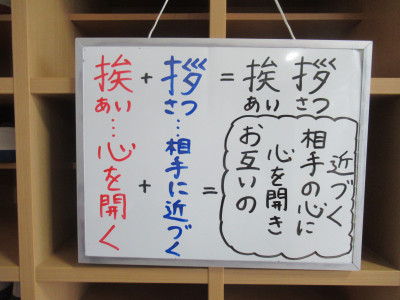 挨 + 拶 = 挨拶
あい さつ あいさつ
あい…心を開く
+
さつ…相手に近づく
=
お互いの
心を開き
相手の心に
近づく